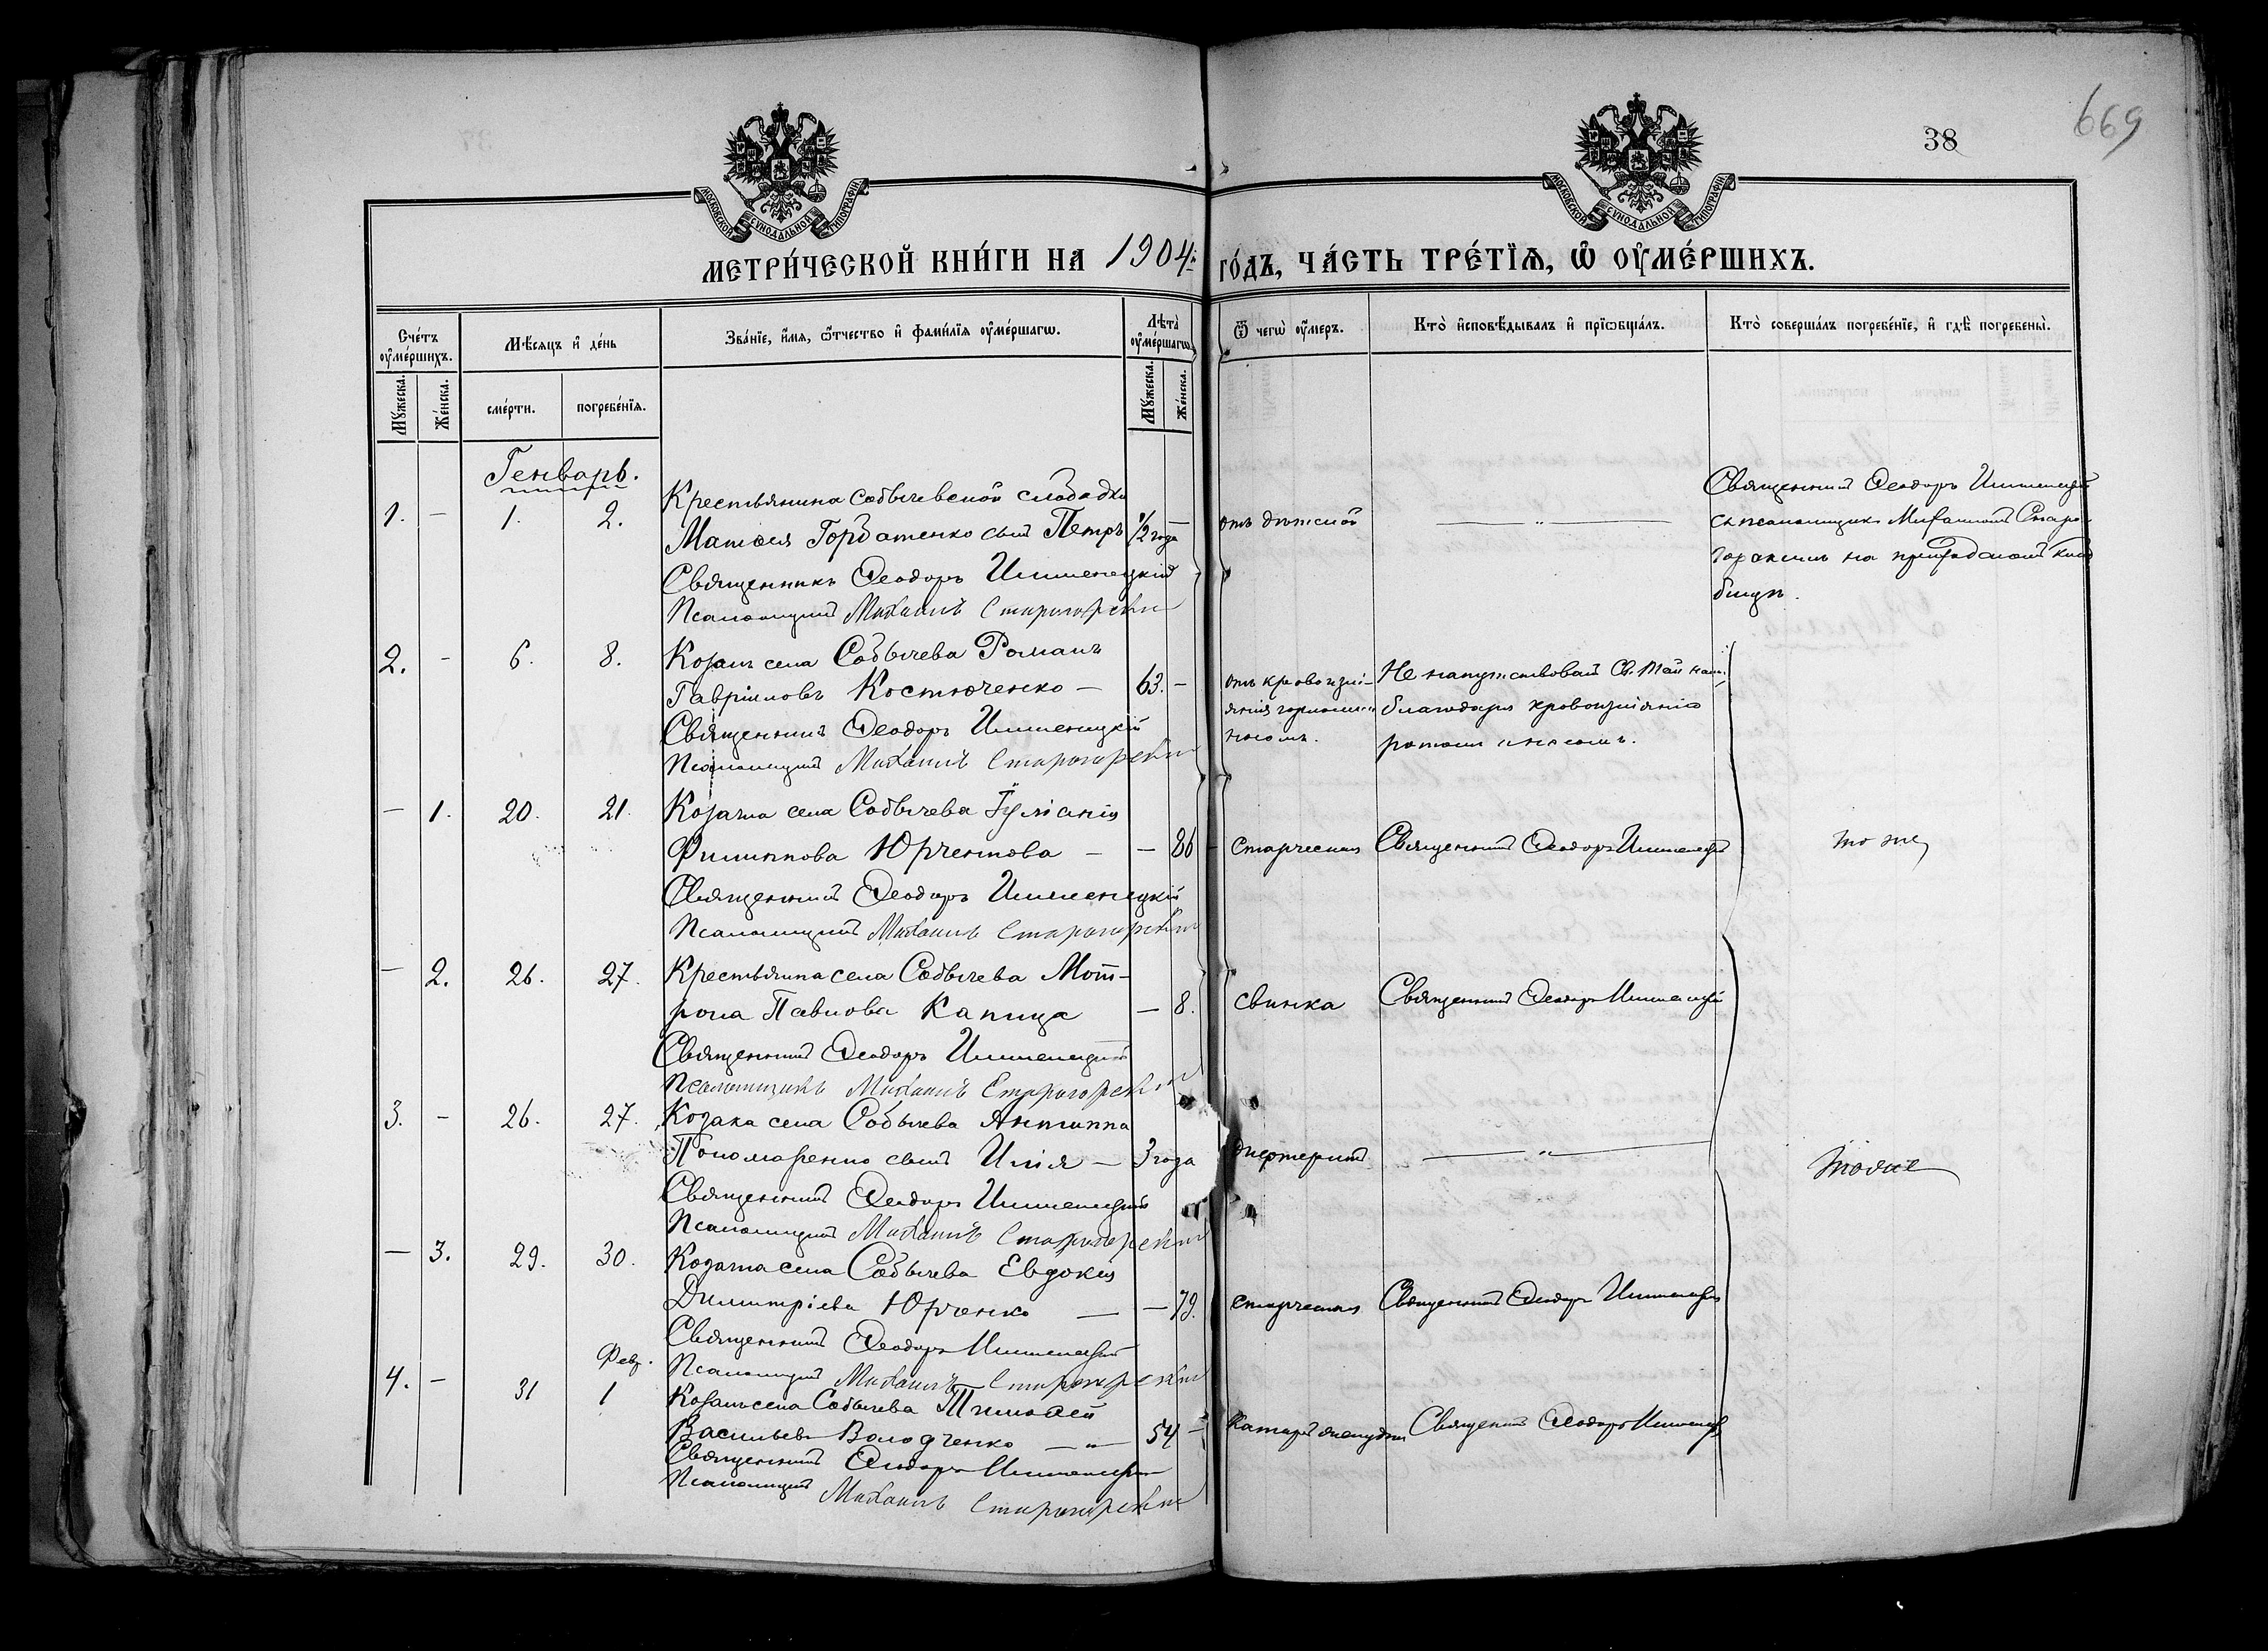 669
38
МОСКОВСКОЙ СѴНОДАЛЬНОЙ ТИПОГРАФІИ
МОСКОВСКОЙ СѴНОДАЛЬНОЙ ТИПОГРАФІИ
МЕТРИ́ЧЕСКОЙ КНИ́ГИ НА 1904 ГО́ДЪ, ЧА́СТЬ ТРЕ́ТЇѦ, Ѡ҆ ОУ҆МЕ́РШИХЪ.
Сче́тъ оу҆ме́ршихъ.
Мꙋжеска.
Же́нска.
Мѣ́сѧцъ и҆ де́нь
сме́рти.
погребе́нїѧ.
Зва́нїе, и҆́мѧ, ѻ҆́тчество и҆ фами́лїѧ оу҆ме́ршагѡ.
Лѣта̀ оу҆ме́ршагѡ.
Мꙋжеска.
Же́нска.
Ѿ чегѡ̀ оу҆́меръ.
Кто̀ и҆сповѣ́дывалъ и҆ прїѡбща́лъ.
Кто̀ соверша́лъ погребе́нїе, и҆ гдѣ̀ погребены̀.
Генварь.
1. - 1. 2.
Крестьянина Собычевской слободки
Матѳея Горбатенко сынъ Петръ 1/2 года -
отъ дѣтской - „ -
Священникъ Ѳеодоръ
Псаломщикъ Михаилъ Старогорскій
Священникъ Ѳеодоръ
съ псаломщикомъ Михаиломъ Старо-
горскимъ на приходскомъ клад
бищѣ.
2. - 6. 8.
Козакъ села Собычева Романъ
Гавріиловъ Костюченко - 63. -
Священникъ Ѳеодоръ
Псаломщикъ Михаилъ Старогорскій
отъ кровоизлі-
янія
носомъ.
Не напутствованъ Св. Тайнами
благодаря кровоизліянію
ротомъ и носомъ.
- 1. 20. 21.
Козачка села Собычева Іуліанія
Филиппова Юрченкова - - 86
Священникъ Ѳеодоръ
Псаломщикъ Михаилъ Старогорскій
старческая Священникъ Ѳеодоръ
то же
- 2. 26. 27.
Крестьянка села Собычева Мот-
рона Павлова Капица - 8.
Священникъ Ѳеодоръ
Псаломщикъ Михаилъ Старогорскій
свинка Священникъ Ѳеодоръ
3. - 26. 27.
Козака села Собычева Антиппа
Пономаренко сынъ Илія - 3 года
Священникъ Ѳеодоръ
Псаломщикъ Михаилъ Старогорскій
дифтеритъ - „ -
тоже
- 3. 29. 30.
Козачка села Собычева Евдокія
Димитріева Юрченко - - 79.
Священникъ Ѳеодоръ
Псаломщикъ Михаилъ Старогорскій
старческая Священникъ Ѳеодоръ
Февр.
4. - 31 1
Козакъ села Собычева Тимоѳей
Васильевъ Володченко - „ - 54 -
Священникъ Ѳеодоръ
Псаломщикъ Михаилъ Старогорскій
Катаръ желудка Священникъ Ѳеодоръ